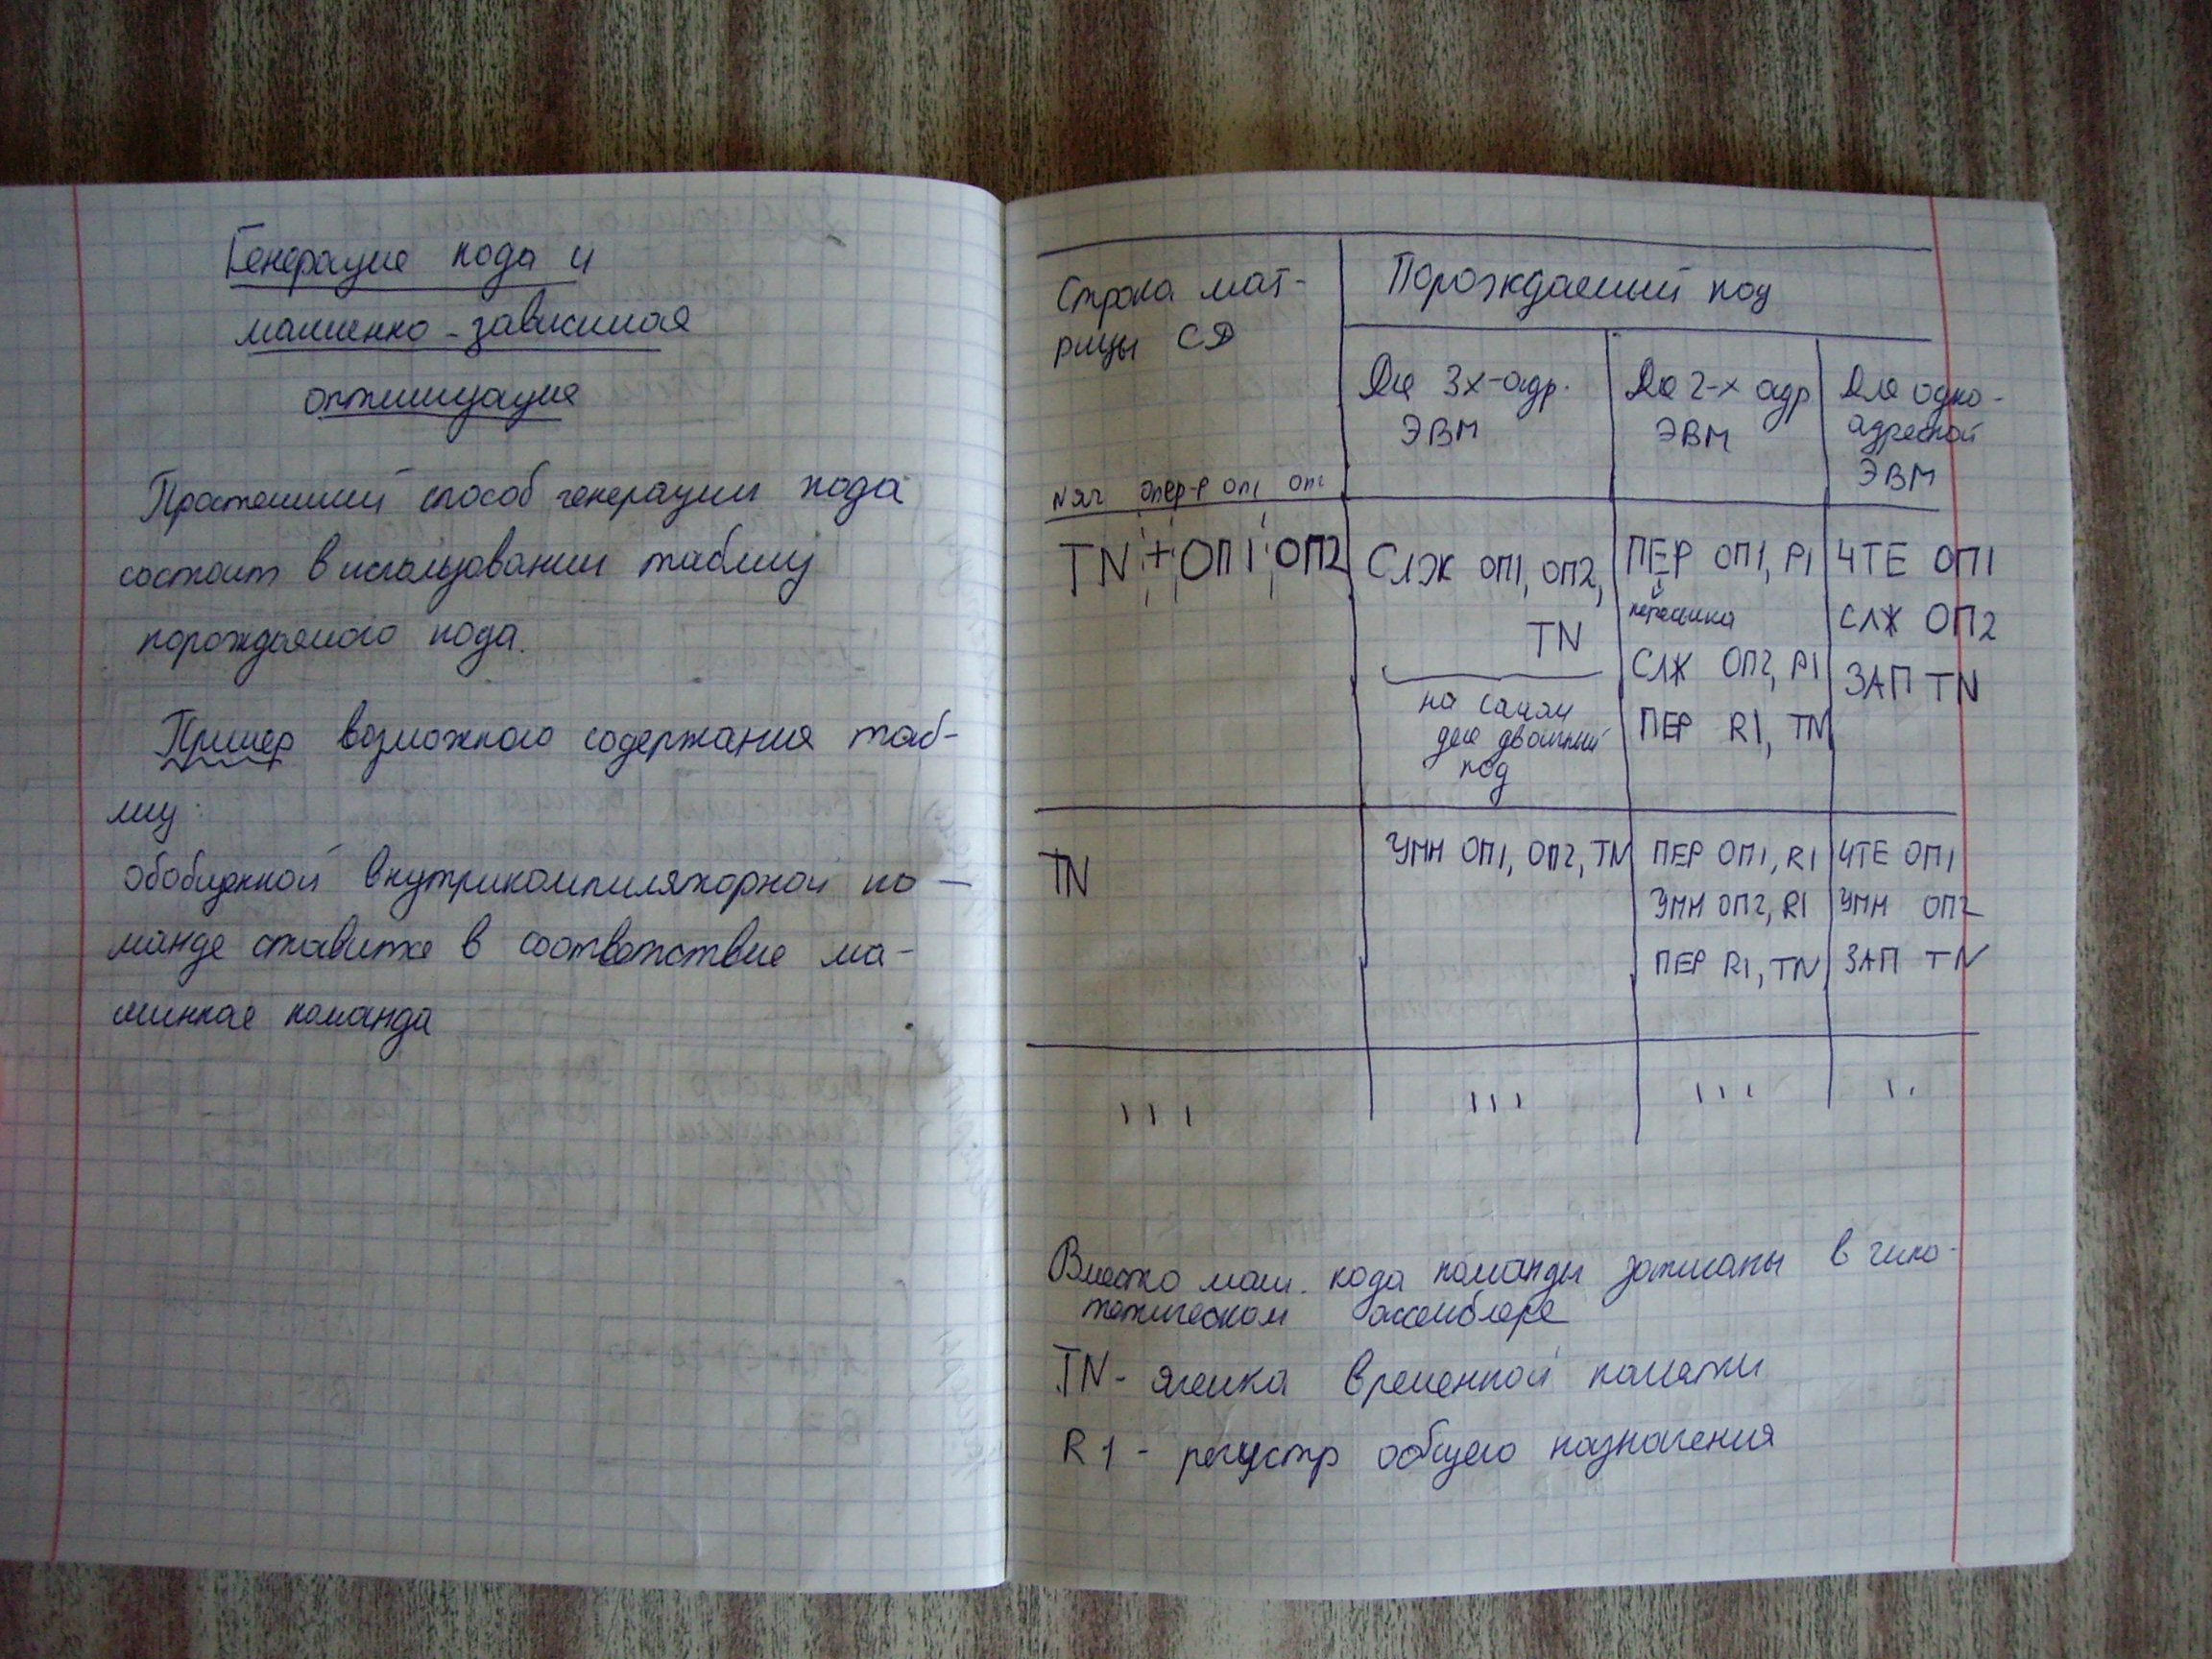 Генерация кода и
машинно-зависимая
оптимизация
Простейший способ генерации кода
состоит в использовании таблиц
порождаемого кода.
Пример возможного содержания таб-
лиц:
обобщенной внутрикомпиляторной ко-
манде ставится в соответствие ма-
шинная команда
Строка мат-
рицы СД
Порождаемый код
Для 3х-адр.
ЭВМ
Для 2-х адр
ЭВМ
Для одно-
адресной
ЭВМ
N яч опер-р ОП1 ОП2
TN + ОП1 ОП2
СЛЖ ОП1, ОП2,
TN
на самом
деле двоичный
код
ПЕР ОП1, Р1
пересылка
СЛЖ ОП2, Р1
ПЕР R1, TN
ЧТЕ ОП1
СЛЖ ОП2
ЗАП TN
TN
УМН ОП1, ОП2, TN
ПЕР ОП1, R1
УМН ОП2, R1
ПЕР R1, TN
ЧТЕ ОП1
УМН ОП2
ЗАП TN
...
...
...
..
Вместо маш. кода команды записаны в гипо-
тетическом ассемблере
TN - ячейка временной памяти
R1 - регистр общего назначения